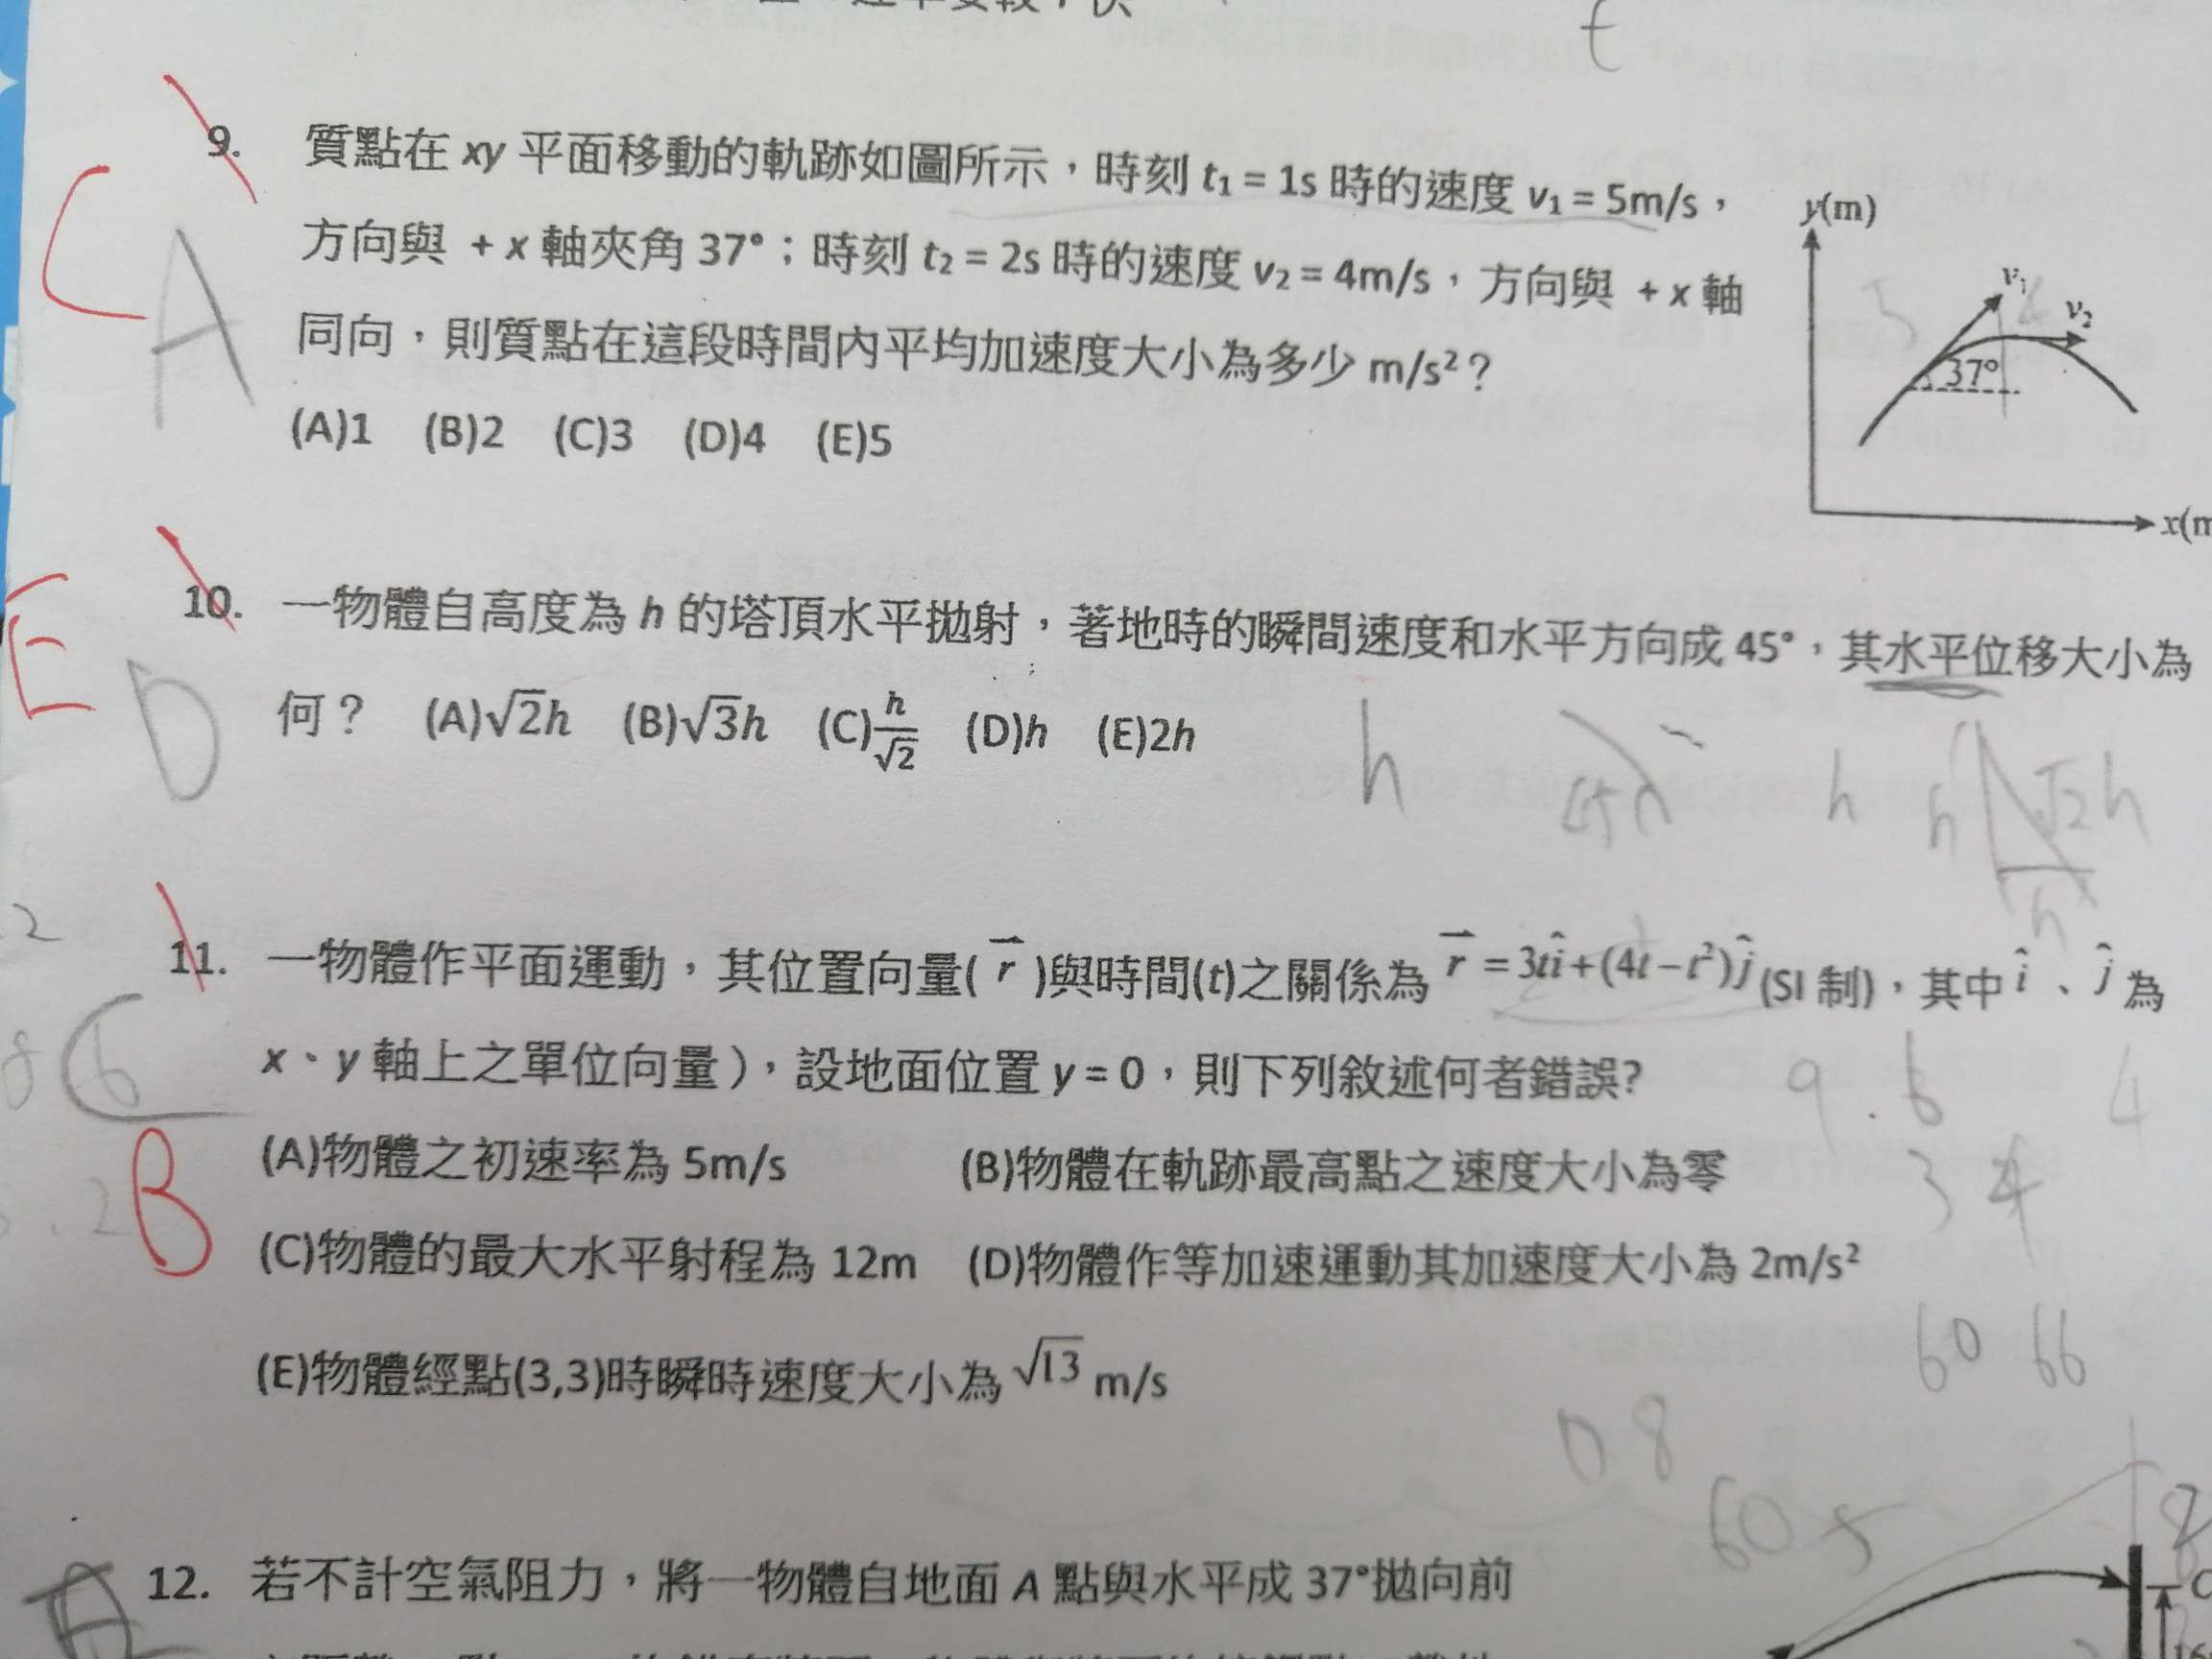 t
9. 質點在 xy 平面移動的軌跡如圖所示，時刻 t₁ = 1s 時的速度 v₁ = 5m/s，
方向與 + x 軸夾角 37°；時刻 t₂ = 2s 時的速度 v₂ = 4m/s，方向與 + x 軸
同向，則質點在這段時間內平均加速度大小為多少 m/s²？
(A)1 (B)2 (C)3 (D)4 (E)5
C
A
y(m)
v₁
v₂
5
37°
10. 一物體自高度為 h 的塔頂水平拋射，著地時的瞬間速度和水平方向成 45°，其水平位移大小為
何？ (A)√2h (B)√3h (C)h/√2 (D)h (E)2h
E
D
h
45
h
h
√2h
h
11. 一物體作平面運動，其位置向量( r⃗ )與時間(t)之關係為 r⃗ = 3tî+(4t−t²)ĵ (SI 制)，其中 î、ĵ 為
x、y 軸上之單位向量），設地面位置 y = 0，則下列敘述何者錯誤?
(A)物體之初速率為 5m/s (B)物體在軌跡最高點之速度大小為零
(C)物體的最大水平射程為 12m (D)物體作等加速運動其加速度大小為 2m/s²
(E)物體經點(3,3)時瞬時速度大小為 √13 m/s
B
9.6
4
3 4
60 66
0 8
60
12. 若不計空氣阻力，將一物體自地面 A 點與水平成 37°拋向前